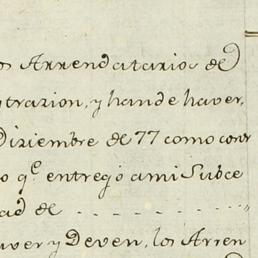 os Arrendatarios de
trazion, y han de haver,
Diziembre de 77 como conr
o q.e entregó a mi Subce
ad de - - - - - - - -"
aver y Deven, los Arren